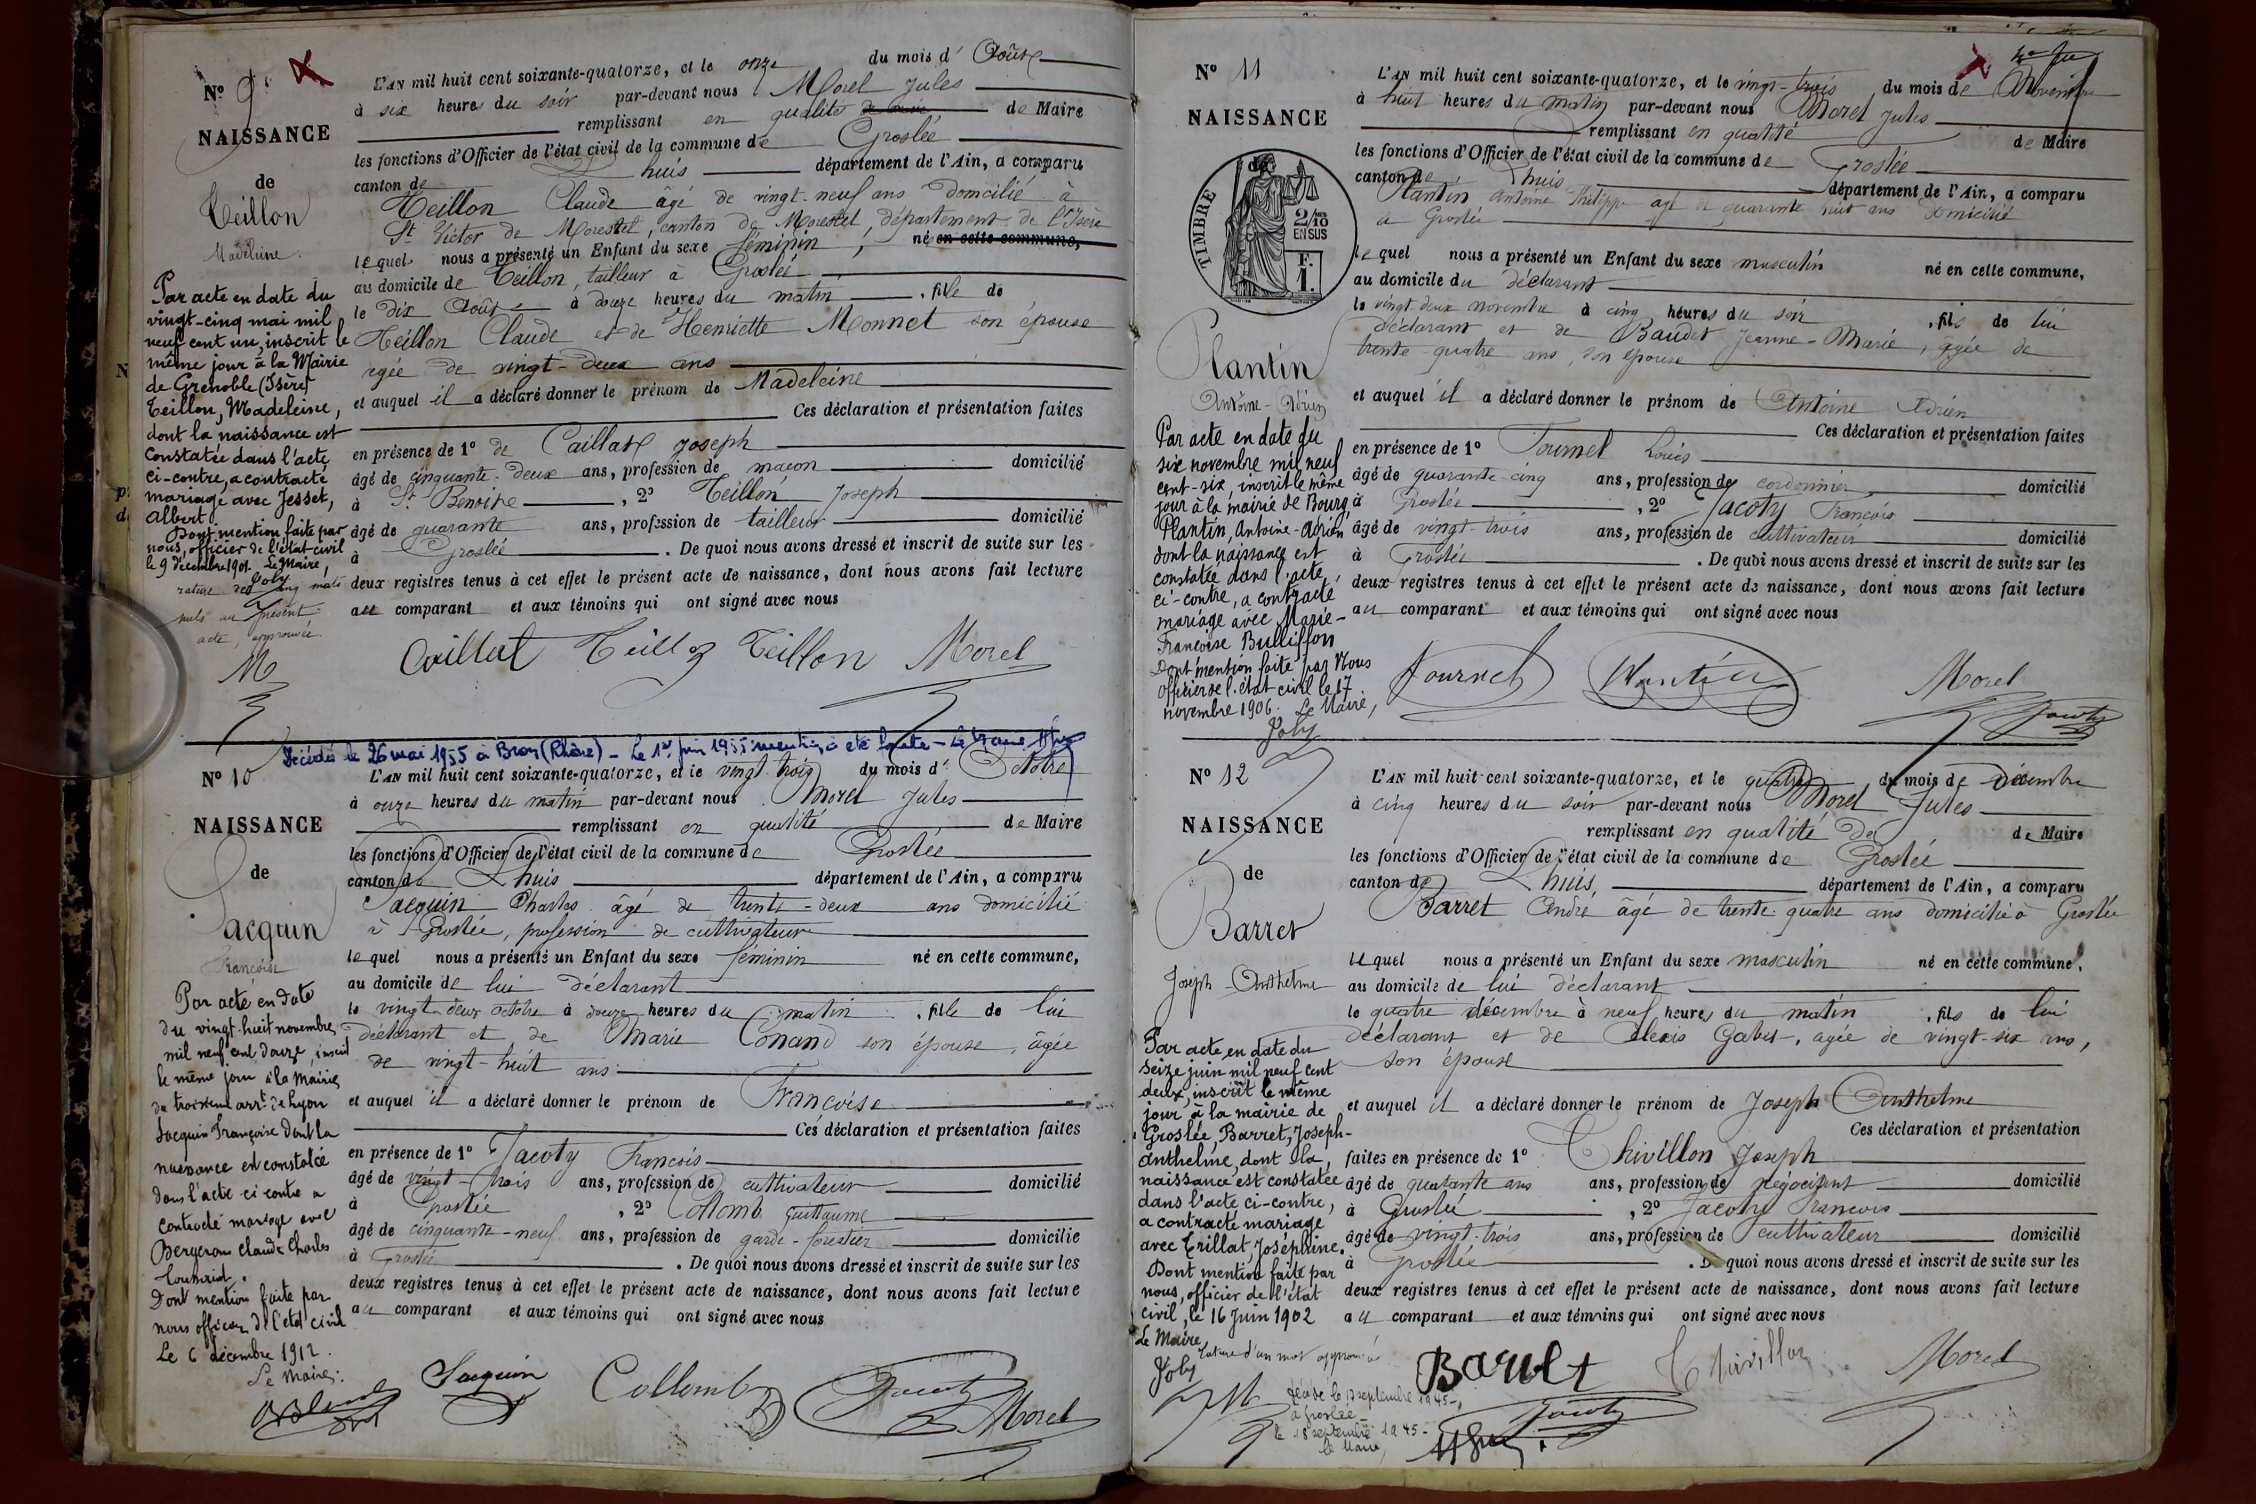 N° 9
NAISSANCE
de
Teillon
Madeleine
Par acte en date du
vingt-cinq mai mil
neuf cent un, inscrit le
même jour à la Mairie
de Grenoble (Isère)
Teillon, Madeleine,
dont la naissance est
constatée dans l'acte
ci-contre, a contracté
mariage avec Jesset,
Albert.
Dont mention faite par
nous, officier de l'état-civil
le 9 décembre 1901. Le Maire,
Joly
rature de cinq mots
nuls au présent
acte, approuvée
M
L'AN mil huit cent soixante-quatorze, et le onze du mois d' Août
à six heures du soir par-devant nous Morel Jules
remplissant en qualité de Maire
les fonctions d'Officier de l'état civil de la commune de Groslée
canton de Lhuis département de l'Ain, a comparu
Teillon Claude âgé de vingt-neuf ans domicilié à
St Victor de Morestel, canton de Morestel, département de l'Isère
lequel nous a présenté un Enfant du sexe féminin, né en cette commune,
au domicile de Teillon, tailleur à Groslée
le dix Août à douze heures du matin, fille de
Teillon Claude et de Henriette Monnet son épouse
agée de vingt-deux ans
et auquel il a déclaré donner le prénom de Madeleine
Ces déclaration et présentation faites
en présence de 1° de Caillat Joseph
âgé de cinquante-deux ans, profession de maçon domicilié
à St Benoit, 2° Teillon Joseph
âgé de quarante ans, profession de tailleur domicilié
à Groslée. De quoi nous avons dressé et inscrit de suite sur les
deux registres tenus à cet effet le présent acte de naissance, dont nous avons fait lecture
au comparant et aux témoins qui ont signé avec nous
Caillat Teillon Teillon Morel
Décédée le 26 mai 1955 à Bron (Rhône) - Le 1er juin 1955 mention a été faite - Le Maire
N° 10
NAISSANCE
de
Jacquin
Françoise
Par acte en date
du vingt-huit novembre
mil neuf cent douze, inscrit
le même jour à la Mairie
du troisième arrt de Lyon
Jacquin Françoise dont la
naissance est constatée
dans l'acte ci-contre a
contracté mariage avec
Bergeron Claude Charles
Dont mention faite par
nous officier de l'état civil
Le 6 décembre 1912.
Le Maire:
L'AN mil huit cent soixante-quatorze, et le vingt-trois du mois d' Octobre
à onze heures du matin par-devant nous Morel Jules
remplissant en qualité de Maire
les fonctions d'Officier de l'état civil de la commune de Groslée
canton de Lhuis département de l'Ain, a comparu
Jacquin Charles âgé de trente-deux ans domicilié
à Groslée, profession de cultivateur
lequel nous a présenté un Enfant du sexe féminin né en cette commune,
au domicile de lui déclarant
le vingt-deux octobre à douze heures du matin, fille de lui
déclarant et de Marie Conand son épouse, âgée
de vingt-huit ans
et auquel il a déclaré donner le prénom de Françoise
Ces déclaration et présentation faites
en présence de 1° Jacoty François
âgé de vingt-trois ans, profession de cultivateur domicilié
à Groslée, 2° Collomb Guillaume
âgé de cinquante-neuf ans, profession de garde-forestier domicilié
à Groslée. De quoi nous avons dressé et inscrit de suite sur les
deux registres tenus à cet effet le présent acte de naissance, dont nous avons fait lecture
au comparant et aux témoins qui ont signé avec nous
Jacquin Collomb Jacoty Morel
N° 11
NAISSANCE
de
TIMBRE
2/10
EN SUS
F.
1.
Plantin
Antoine-Adrien
Par acte en date du
six novembre mil neuf
cent-six, inscrit le même
jour à la mairie de Bourg
Plantin, Antoine-Adrien
dont la naissance est
constatée dans l'acte
ci-contre, a contracté
mariage avec Marie-
Françoise Bulliffon
Dont mention faite par Nous
Officier de l'état civil le 17
novembre 1906. Le Maire,
Joly
L'AN mil huit cent soixante-quatorze, et le vingt-trois du mois de Novembre
à huit heures du matin par-devant nous Morel Jules
remplissant en qualité de Maire
les fonctions d'Officier de l'état civil de la commune de Groslée
canton de Lhuis département de l'Ain, a comparu
Plantin Antoine Philippe agé de quarante huit ans domicilié
à Groslée
lequel nous a présenté un Enfant du sexe masculin né en cette commune,
au domicile du déclarant
le vingt-deux novembre à cinq heures du soir, fils de lui
déclarant et de Baudet Jeanne-Marie, agée de
trente-quatre ans, son épouse
et auquel il a déclaré donner le prénom de Antoine Adrien
Ces déclaration et présentation faites
en présence de 1° Fournel Louis
âgé de quarante-cinq ans, profession de cordonnier domicilié
à Groslée, 2° Jacoty François
âgé de vingt-trois ans, profession de cultivateur domicilié
à Groslée. De quoi nous avons dressé et inscrit de suite sur les
deux registres tenus à cet effet le présent acte de naissance, dont nous avons fait lecture
au comparant et aux témoins qui ont signé avec nous
Fournel Plantin Morel
Jacoty
N° 12
NAISSANCE
de
Barret
Joseph-Anthelme
Par acte en date du
seize juin mil neuf cent
deux, inscrit le même
jour à la mairie de
Groslée, Barret, Joseph-
anthelme, dont la
naissance est constatée
dans l'acte ci-contre,
a contracté mariage
avec Trillat Joséphine.
Dont mention faite par
nous, officier de l'état
civil, le 16 Juin 1902
Le Maire
Joly
Rature d'un mot approuvée
M
L'AN mil huit cent soixante-quatorze, et le quatre du mois de décembre
à cinq heures du soir par-devant nous Morel Jules
remplissant en qualité de de Maire
les fonctions d'Officier de l'état civil de la commune de Groslée
canton de Lhuis, département de l'Ain, a comparu
Barret André âgé de trente-quatre ans domicilié à Groslée
lequel nous a présenté un Enfant du sexe masculin né en cette commune,
au domicile de lui déclarant
le quatre décembre à neuf heures du matin, fils de lui
déclarant et de Alexis Gabet, agée de vingt-six ans,
son épouse
et auquel il a déclaré donner le prénom de Joseph Anthelme
Ces déclaration et présentation
faites en présence de 1° Thivillon Joseph
âgé de quarante ans ans, profession de négociant domicilié
à Groslée, 2° Jacoty François
âgé de vingt-trois ans, profession de cultivateur domicilié
à Groslée. De quoi nous avons dressé et inscrit de suite sur les
deux registres tenus à cet effet le présent acte de naissance, dont nous avons fait lecture
au comparant et aux témoins qui ont signé avec nous
Barret Thivillon Morel
Jacoty
décédé le 17 septembre 1945-,
à Groslée-
le 18 septembre 1945-
le Maire,